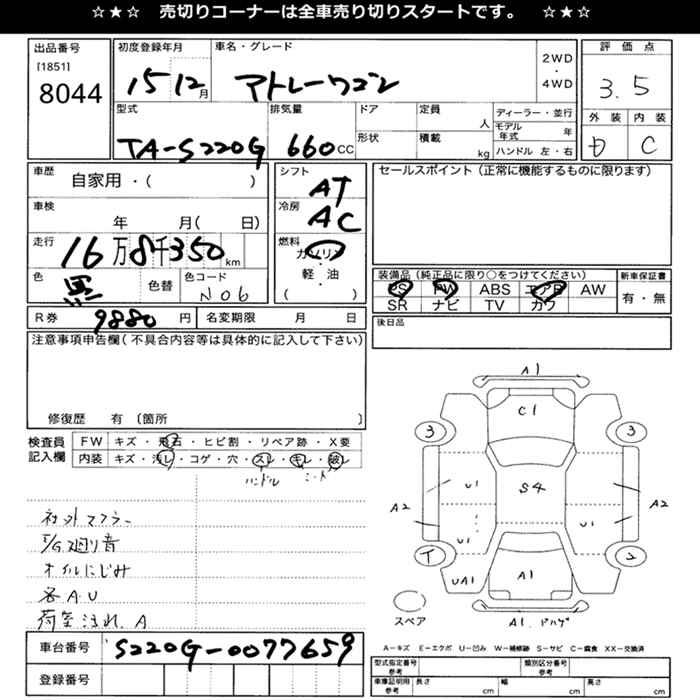 ☆★☆ 売切りコーナーは全車売り切りスタートです。 ☆★☆
出品番号
[1851]
8044
初度登録年月
15 12月
車名・グレード
アトレーワゴン
2WD
・
4WD
評価点
3.5
型式
TA-S220G
排気量
660CC
ドア
形状
定員
人
積載
kg
ディーラー・並行
モデル年式 年
ハンドル 左・右
外装
D
内装
C
車歴
自家用・( )
シフト
AT
セールスポイント(正常に機能するものに限ります)
車検
年 月( 日)
冷房
AC
走行
16万8千350km
燃料
ガソリン
・
軽・油
( )
色
黒
色替
色コード
N06
装備品(純正品に限り○をつけてください)
PS PW ABS エアB AW
SR ナビ TV カワ
新車保証書
有・無
R券 9880円
名変期限 月 日
後日品
注意事項申告欄(不具合内容等は具体的に記入して下さい)
修復歴 有 〔箇所 〕
検査員記入欄
FW キズ・飛石・ヒビ割・リペア跡・X要
内装 キズ・汚レ・コゲ・穴・スレ・キレ・破レ
ハンドル シート
社外マフラー
E/G廻り音
オイルにじみ
各A.U
荷室汚れ.A
A1
C1
3
3
U1
S4
A2
A2
U1
U1
T
2
UA1
A1
スペア
A1.ドハゲ
A-キズ E-エクボ U-凹み W-補修跡 S-サビ C-腐食 XX-交換済
車台番号
S220G-0077659
登録番号
型式指定番号 参考
類別区分番号 参考
車庫証明用 参考
長さ cm
幅 cm
高さ cm